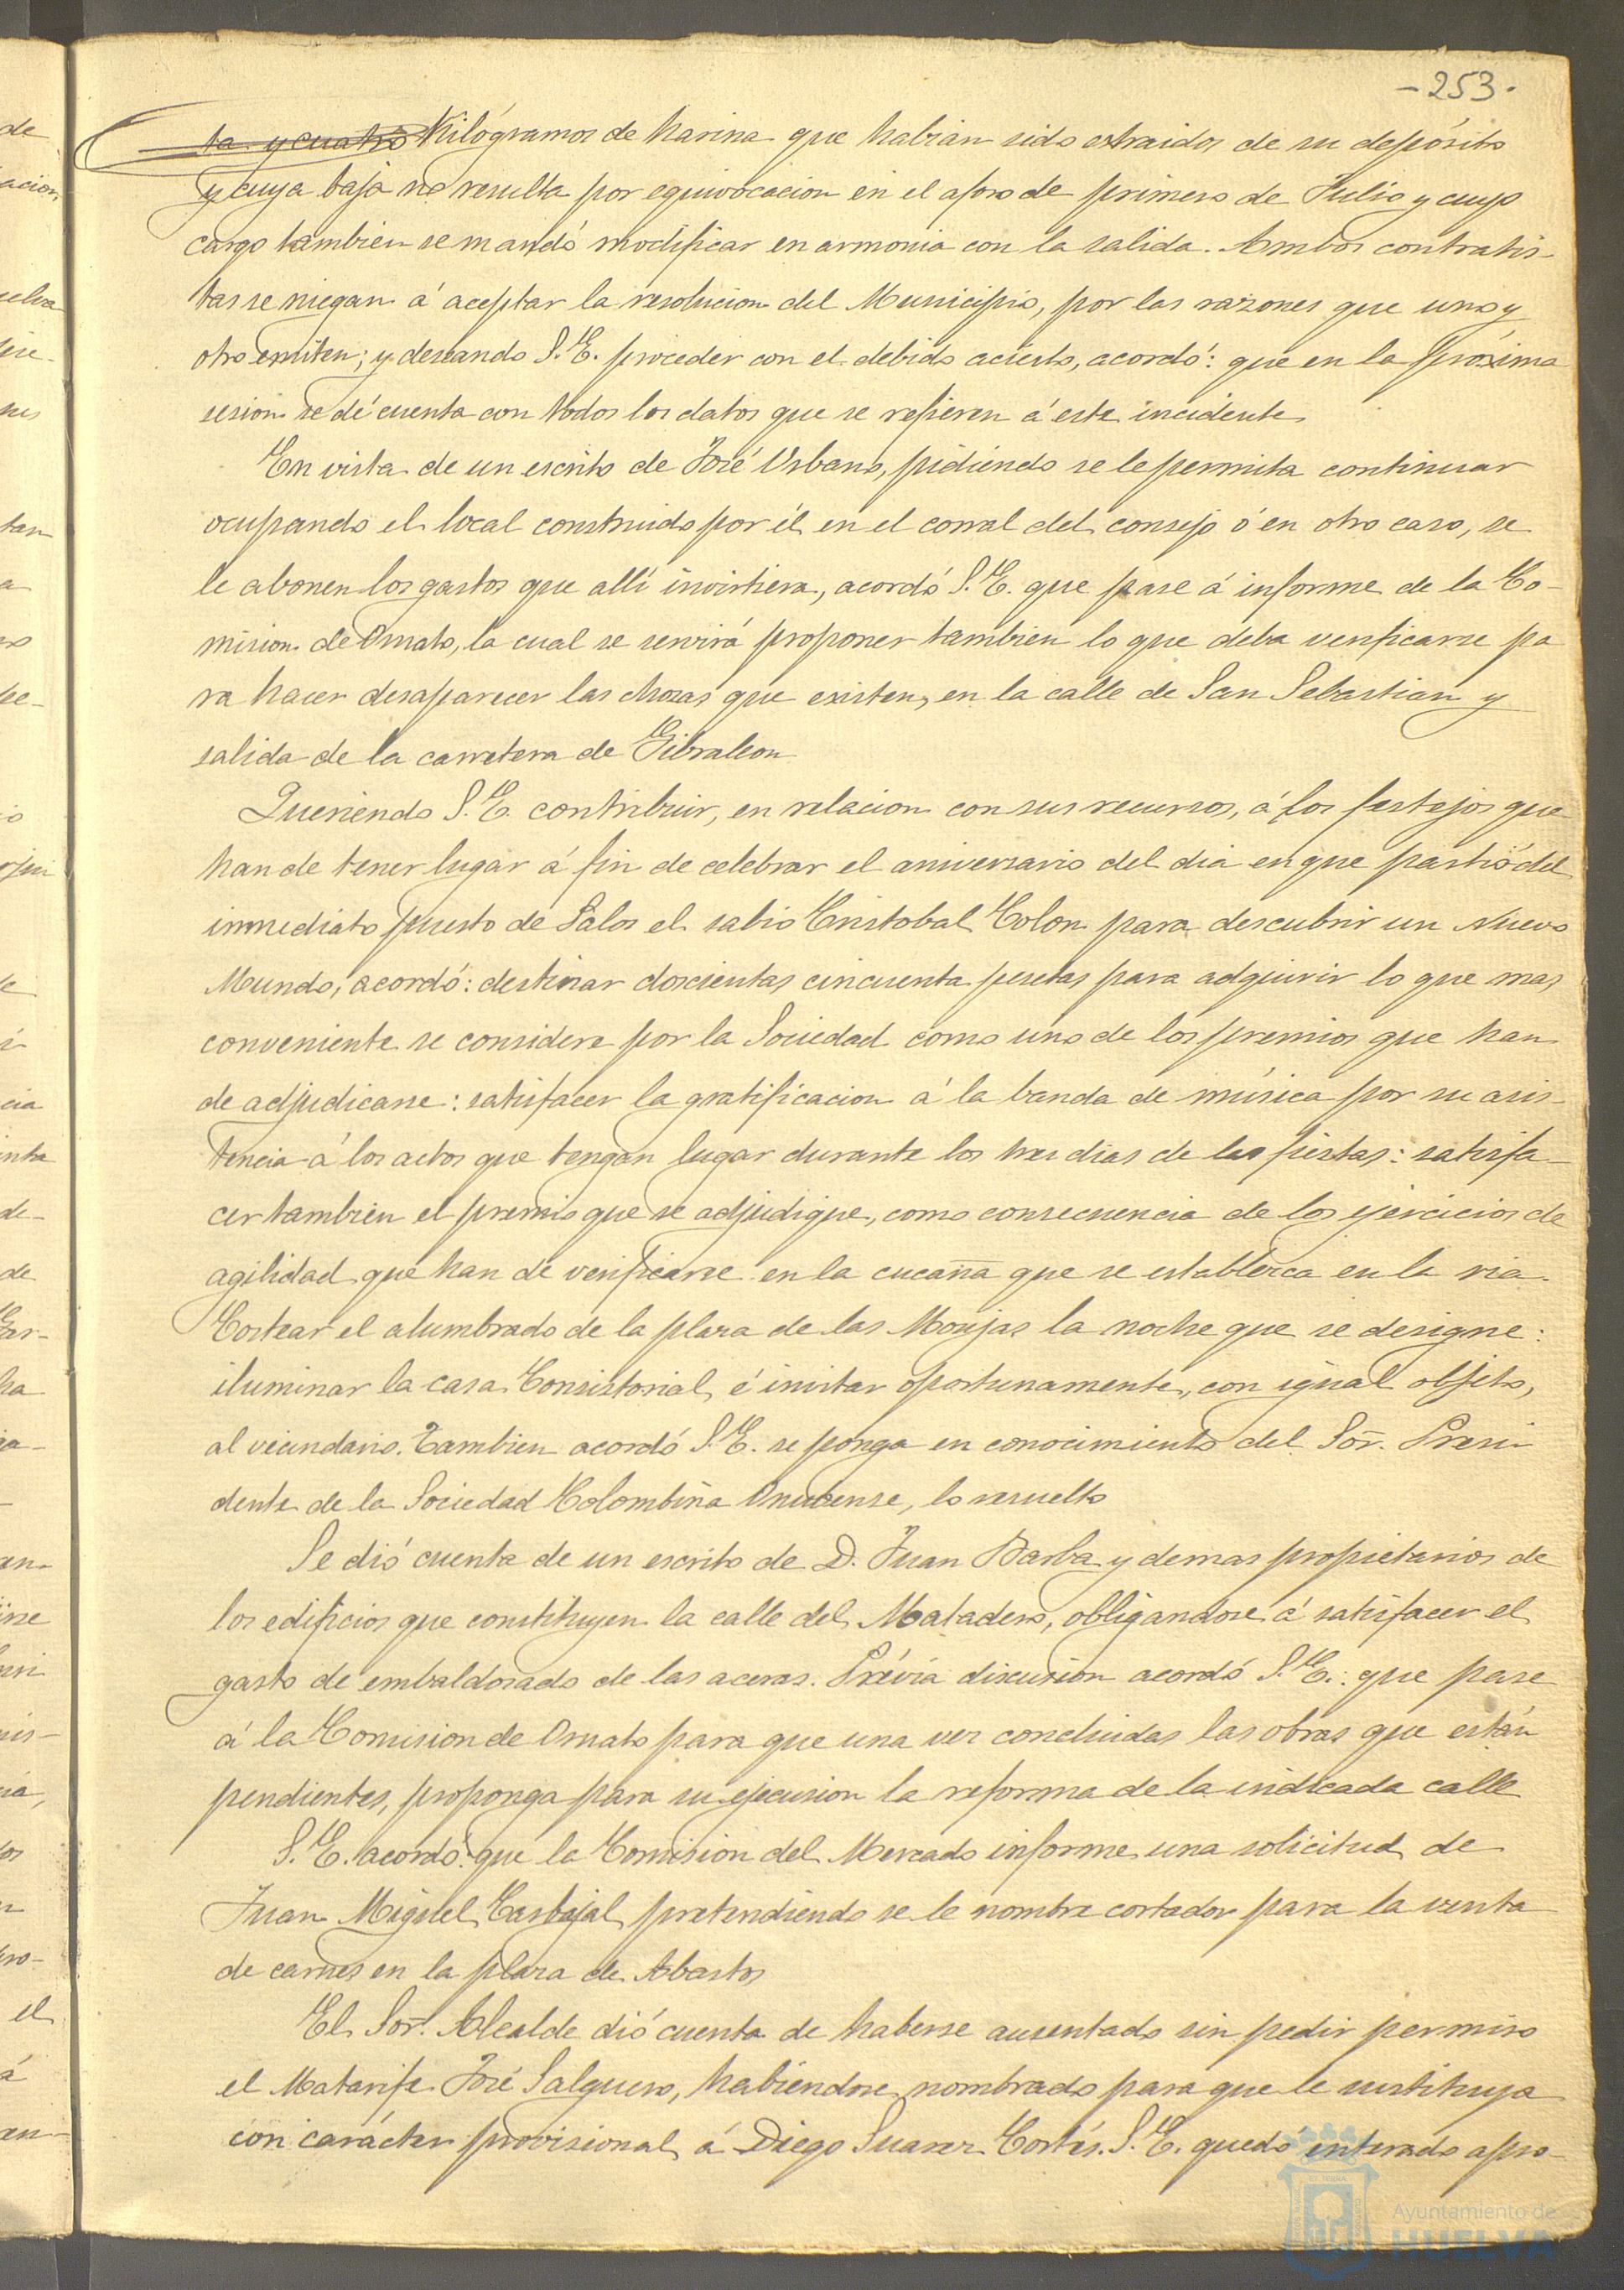 -253-
ta y cuatro Kilógramos de harina que habian sido extraidos de su depósito
y cuya baja no resulta por equivocacion en el aforo de primero de Julio y cuyo
cargo tambien se mandó modificar en armonia con la salida. Ambos contratis-
tas se niegan á aceptar la resolucion del Municipio, por las razones que uno y
otro emiten; y deseando S.E. proceder con el debido acierto, acordó: que en la próxima
sesion se dé cuenta con todos los datos que se refieren á este incidente
En vista de un escrito de José Urbano, pidiendo se le permita continuar
ocupando el local construido por él en el corral del consejo ó en otro caso, se
le abonen los gastos que allí invirtiera, acordó S.E. que pase á informe de la Co-
mision de Ornato, la cual se servirá proponer tambien lo que deba verificarse pa
ra hacer desaparecer las chozas que existen, en la calle de San Sebastian y
salida de la carretera de Gibraleon
Queriendo S.E. contribuir, en relacion con sus recursos, á los festejos que
han de tener lugar á fin de celebrar el aniversario del dia en que partió del
inmediato puesto de Palos el sabio Cristobal Colon para descubrir un Nuevo
Mundo, acordó: destinar doscientas cincuenta pesetas para adquirir lo que mas
conveniente se considere por la Sociedad como uno de los premios que han
de adjudicarse: satisfacer la gratificacion á la banda de música por su asis-
tencia á los actos que tengan lugar durante los tres dias de las fiestas: satisfa-
cer tambien el premio que se adjudique, como consecuencia de los ejercicios de
agilidad que han de verificarse en la cucaña que se establezca en la ria.
Costear el alumbrado de la plaza de las Monjas la noche que se designe:
iluminar la casa Consistorial, é invitar oportunamente, con igual objeto,
al vecindario. Tambien acordó S.E. se ponga en conocimiento del Sor. Presi-
dente de la Sociedad Colombina Onubense, lo resuelto
Se dió cuenta de un escrito de D. Juan Barba y demas propietarios de
los edificios que constituyen la calle del Matadero, obligandose á satisfacer el
gasto de embaldosado de las aceras. Prévia discusion acordó S.E.: que pase
á la Comision de Ornato para que una vez concluidas las obras que están
pendientes, proponga para su ejecusion la reforma de la indicada calle
S.E. acordó: que la Comision del Mercado informe una solicitud de
Juan Miguel Carbajal, pretendiendo se le nombre cortador para la venta
de carnes en la plaza de Abastos
El Sor. Alcalde dió cuenta de haberse ausentado sin pedir permiso
el Matarife José Salguero, habiéndose nombrado para que le sustituya
con carácter provisional, á Diego Suarez Cortés. S.E. quedó enterado apro-
Ayuntamiento de
HUELVA